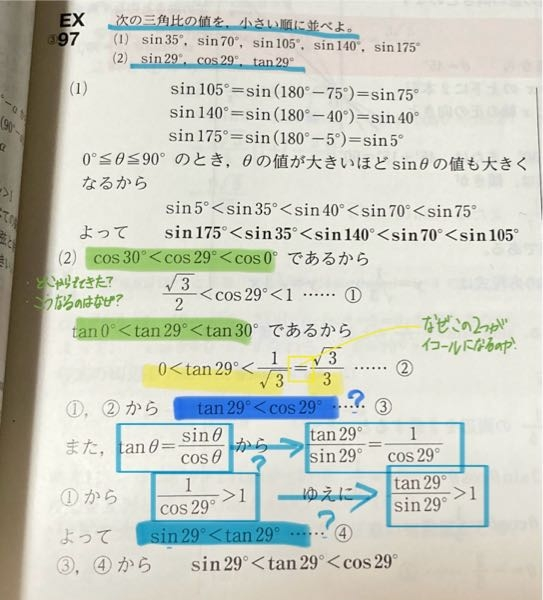 EX
③97
次の三角比の値を，小さい順に並べよ。
(1) sin35°, sin70°, sin105°, sin140°, sin175°
(2) sin29°, cos29°, tan29°
(1) sin105°=sin(180°−75°)=sin75°
sin140°=sin(180°−40°)=sin40°
sin175°=sin(180°−5°)=sin5°
0°≦θ≦90° のとき，θの値が大きいほどsinθの値も大きく
なるから
sin5°<sin35°<sin40°<sin70°<sin75°
よって sin175°<sin35°<sin140°<sin70°<sin105°
(2) cos30°<cos29°<cos0° であるから
・どこからでてきた?
・こうなるのはなぜ?
√3/2<cos29°<1 …… ①
tan0°<tan29°<tan30° であるから
なぜこの2つが
イコールになるのか
0<tan29°<1/√3=√3/3 …… ②
①，②から tan29°<cos29° …… ③ ?
また，tanθ=sinθ/cosθ から tan29°/sin29°=1/cos29°
?
①から 1/cos29°>1 ゆえに tan29°/sin29°>1
よって sin29°<tan29° …… ④ ?
③，④から sin29°<tan29°<cos29°